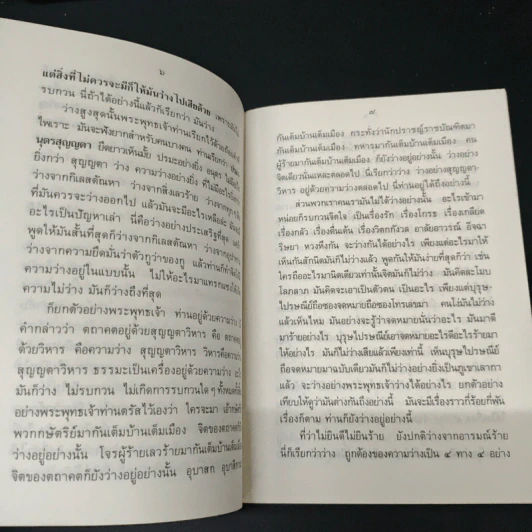 ๖
แต่สิ่งที่ไม่ควรจะมีก็ให้มันว่างไปเสียด้วย
รบกวน นี่ถ้าได้อย่างนี้แล้วก็เรียกว่า มันว่าง
ว่างสูงสุดนั้นพระพุทธเจ้าท่านเรียกไว้
ไพเราะ มันจะฟังยากสำหรับคนบางคน ท่านเรียกว่า
นุตรสุญฺญตา ยืดยาวเห็นมั้ย ปรมะอย่างยิ่ง อนุตร
ยิ่งกว่า สุญฺญตา ว่าง ความว่างอย่างยิ่ง ที่ไม่มีอะไร
ว่างจากกิเลสตัณหา ว่างจากสิ่งเลวร้าย ว่างจาก
ที่มันควรจะว่างออกไป แล้วมันจะมีอะไรเหลืออยู่
อะไรเป็นปัญหาเล่า นี่คือว่างอย่างประเสริฐที่สุด
พูดให้มันสั้นที่สุดก็ว่างจากกิเลสตัณหา ว่างจาก
ว่างจากความยึดมันว่าตัวกูว่าของกู แล้วท่านก็
ความว่างอยู่ในแบบนั้น ไม่ให้อะไรมาแทรกแซง
ความไม่ว่าง มันก็ว่างถึงที่สุด
ก็ยกตัวอย่างพระพุทธเจ้า ท่านอยู่ด้วยความว่าง
คำกล่าวว่า ตถาคตอยู่ด้วยสุญฺญตาวิหาร คือ
ด้วยวิหาร คือความว่าง สุญฺญตาวิหาร วิหารคือความ
สุญฺญตาวิหาร ธรรมะเป็นเครื่องอยู่ด้วยความว่าง
มันก็ว่าง ไม่รบกวน ไม่เกิดการรบกวนใดๆ ทั้งหมด
อย่างพระพุทธเจ้าท่านตรัสไว้เองว่า ใครจะมา
พวกกษัตริย์มากันเต็มบ้านเต็มเมือง จิตของตถาคต
ว่างอยู่อย่างนั้น โจรผู้ร้ายเลวร้ายมากันเต็มบ้านเต็มเมือง
จิตของตถาคตก็ยังว่างอยู่อย่างนั้น อุบาสก อุบาสิกา
๗
กันเต็มบ้านเต็มเมือง กระทั่งว่านักปราชญ์ราชบัณฑิตมา
กันเต็มบ้านเต็มเมือง ทหารมากันเต็มบ้านเต็มเมือง คน
ผู้ร้ายมากันเต็มบ้านเต็มเมือง ก็ยังว่างอยู่อย่างนั้น ว่างอย่าง
จิตเดียวนั่นแหละตลอดไป นี่เรียกว่าว่าง ว่างอย่างสุญฺญตา-
วิหาร อยู่ด้วยความว่างตลอดไป นี่ท่านอยู่ได้ถึงอย่างนี้
ส่วนพวกเราคนเรามันไม่ได้ว่างอย่างนั้น อะไรเข้ามา
หน่อยก็รบกวนจิตใจ เป็นเรื่องรัก เรื่องโกรธ เรื่องเกลียด
เรื่องกลัว เรื่องตื่นเต้น เรื่องวิตกกังวล อาลัยอาวรณ์ อิจฉา
ริษยา หวงหึงกัน จะว่างกันได้อย่างไร เพียงแต่อะไรมาให้
เห็นกันสักนิดมันก็ไม่ว่างแล้ว พูดกันให้มันง่ายที่สุดก็ว่า เช่น
ใครถืออะไรมานิดเดียวเท่านั้นจิตมันก็ไม่ว่าง มันคิดละโมบ
โลภลาภ มันคิดจะเอามาเป็นตัวตน เป็นอะไร เพียงแต่บุรุษ-
ไปรษณีย์ถือซองจดหมายถือของโทรเลขมา คนโง่มันไม่ว่าง
แล้วเห็นไหม มันอย่างจะรู้ว่าจดหมายนั่นว่าอะไร มันมาดี
มาร้ายอย่างไร บุรุษไปรษณีย์เอาจดหมายอะไรดีอะไรร้ายมา
ให้อย่างไร มันก็ไม่ว่างเสียแล้วเพียงเท่านี้ เห็นบุรุษไปรษณีย์
ถือจดหมายมาฉบับเดียวมันก็ไม่ว่างอย่างยิ่งเป็นภูเขาเลากา
แล้ว จะว่างอย่างพระพุทธเจ้าว่างได้อย่างไร ยกตัวอย่าง
เทียบให้ดูว่ามันต่างกันถึงอย่างนี้ มันจะมีเรื่องราวกี่ร้อยกี่พัน
เรื่องก็ตาม ท่านก็ยังว่างอยู่อย่างนี้
ที่ว่าไม่ยินดีไม่ยินร้าย ยังปกติว่างจากอารมณ์ร้าย
นี่ก็เรียกว่าว่าง ถูกต้องของความว่างเป็น ๔ ทาง ๔ อย่าง